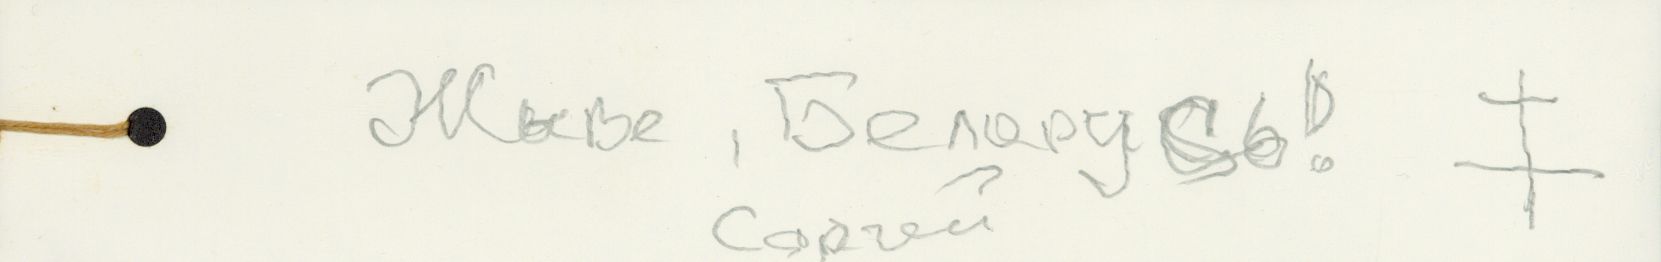 Жыве, Беларусь!
Сяргей